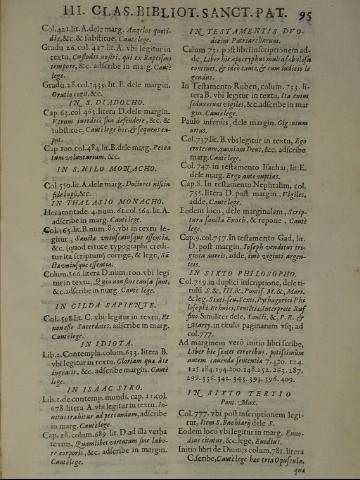 III. CLAS. BIBLIOT. SANCT. PAT. 95
Col. 421. lit. A. dele marg. Angelos quoti-
die, &c. & substitue, Cautè lege.
Gradu 26. col. 427. lit. A. vbi legitur in
textu, Custodes nostri, qui ex Baptismi
tempore, &c. adscribe in marg. Cautè
lege.
Gradu 28. col. lit. E. dele margin.
Oratio iugis, &c.
IN S. DIADOCHO.
Cap. 63. col. 463. litera D. dele margin.
defendere, &c. &
substitue, Cautè lege hoc, & sequens ca-
put.
Cap. 100. col. 484. lit. B. dele marg. Pecca
tum voluntarium, &c.
IN S. NILO MONACHO.
Col. 550. lit. A. dele marg. nisi in
fide loqui, &c.
IN THALASIO MONACHO.
Hecatontade. 4. num. 61. col. 564. lit. A.
adscribe in marg. Cautè lege.
Col. 565. lit. B. num. 86. vbi in textu le-
gitur, Sancta essentia,
&c. (quod errore typographi credi-
tur ita scriptum) corrige, & lege,
essentia.
Colum. 566. litera D. num. 100. vbi legi-
tur in textu, Quia non sine causa sunt,
&c. adscribe in margin. Cautè lege.
IN GILDA SAPIENTE.
Col. 598. lit. C. vbi legitur in textu, Et
non esse Sacerdotes, adscribe in marg.
Cautè lege.
IN IDIOTA.
Lib. 2. Contempla. colum. 633. litera B.
vbi legitur in textu, Gloriam qua
, &c. adscribe in margin. Cautè
lege.
IN ISAAC SYRO.
Lib. 1. de contemp. mundi, cap. 21. col.
678. litera A. vbi legitur in textu,
ad peccandum, adscribe
in marg. Cautè lege.
Cap. 28. colum. 689. lit. D. ad illa verba
textus, Quamlibet virtutum sine labo-
re corporis, &c. adscribe in margin.
Cautè lege.
IN TESTAMENTIS DVO-
decim Patriarcharum.
Colum. 731. post libri inscriptionem ad-
de, Liber hic apocryphus multa fabulosa
continet, & ideo cautè, & cum iudicio le-
gendus.
In Testamento Ruben, colum. 733. li-
tera B. vbi legitur in textu, Ita enim
seduxerunt vigiles, &c. adscribe in mar
gin. Cautè lege.
Paulo inferius, dele margin. Gignuntur
ortus.
Col. 737. lit. B. vbi legitur in textu, Ego
Deus, &c. adscribe
marg. Cautè lege.
Col. 747. in testamento Isachar, lit. E.
dele marg. Ergo ante
Cap. 8. In testamento Nephtalim, col.
757. litera D. post margin. Vigiles,
adde, Cautè lege.
Eodem loco, dele marginalem, Scrip-
tura sancta Enoch, & repone, Cautè
lege.
Cap. 9. col. 757. In testamento Gad, lit.
D. post margin. Ioseph venditus tri-
ginta aureis, adde, imò viginti argen-
teis.
IN SIXTO PHILOSOPHO.
Col. 719. in duplici inscriptione, dele ti-
tulos S. & III. &c. Pontif. M. &c. Mart.
& leg. Sixti, seu Xesti, Pythagorici Phi
losophi Ethnici, Sententiae, Interprete Ruf
fino. Similiter dele, Sancti, &c. P. R. &
Martyr. in titulis paginarum vsque ad
col. 777.
Ad marginem verò initio libri scribe,
Liber hic scatet erroribus, potissimùm
autem cauenda sententia 7. 120. 124.
125. 184. 194. 200. 248. 252. 283. 287.
292. 336. 342. 343. 393. 396. 409.
IN SIXTO TERTIO
Pont. Max.
Col. 777. vbi post inscriptionem legi-
tur, Item S. Eucharij dele S.
Eodem loco vbi legitur in marg. Euno-
dius citatur, &c. lege, Euodius.
Initio libri de Diuitijs colum. 781. litera
C. scribe, Cautè lege hac tria Opuscula,
qua